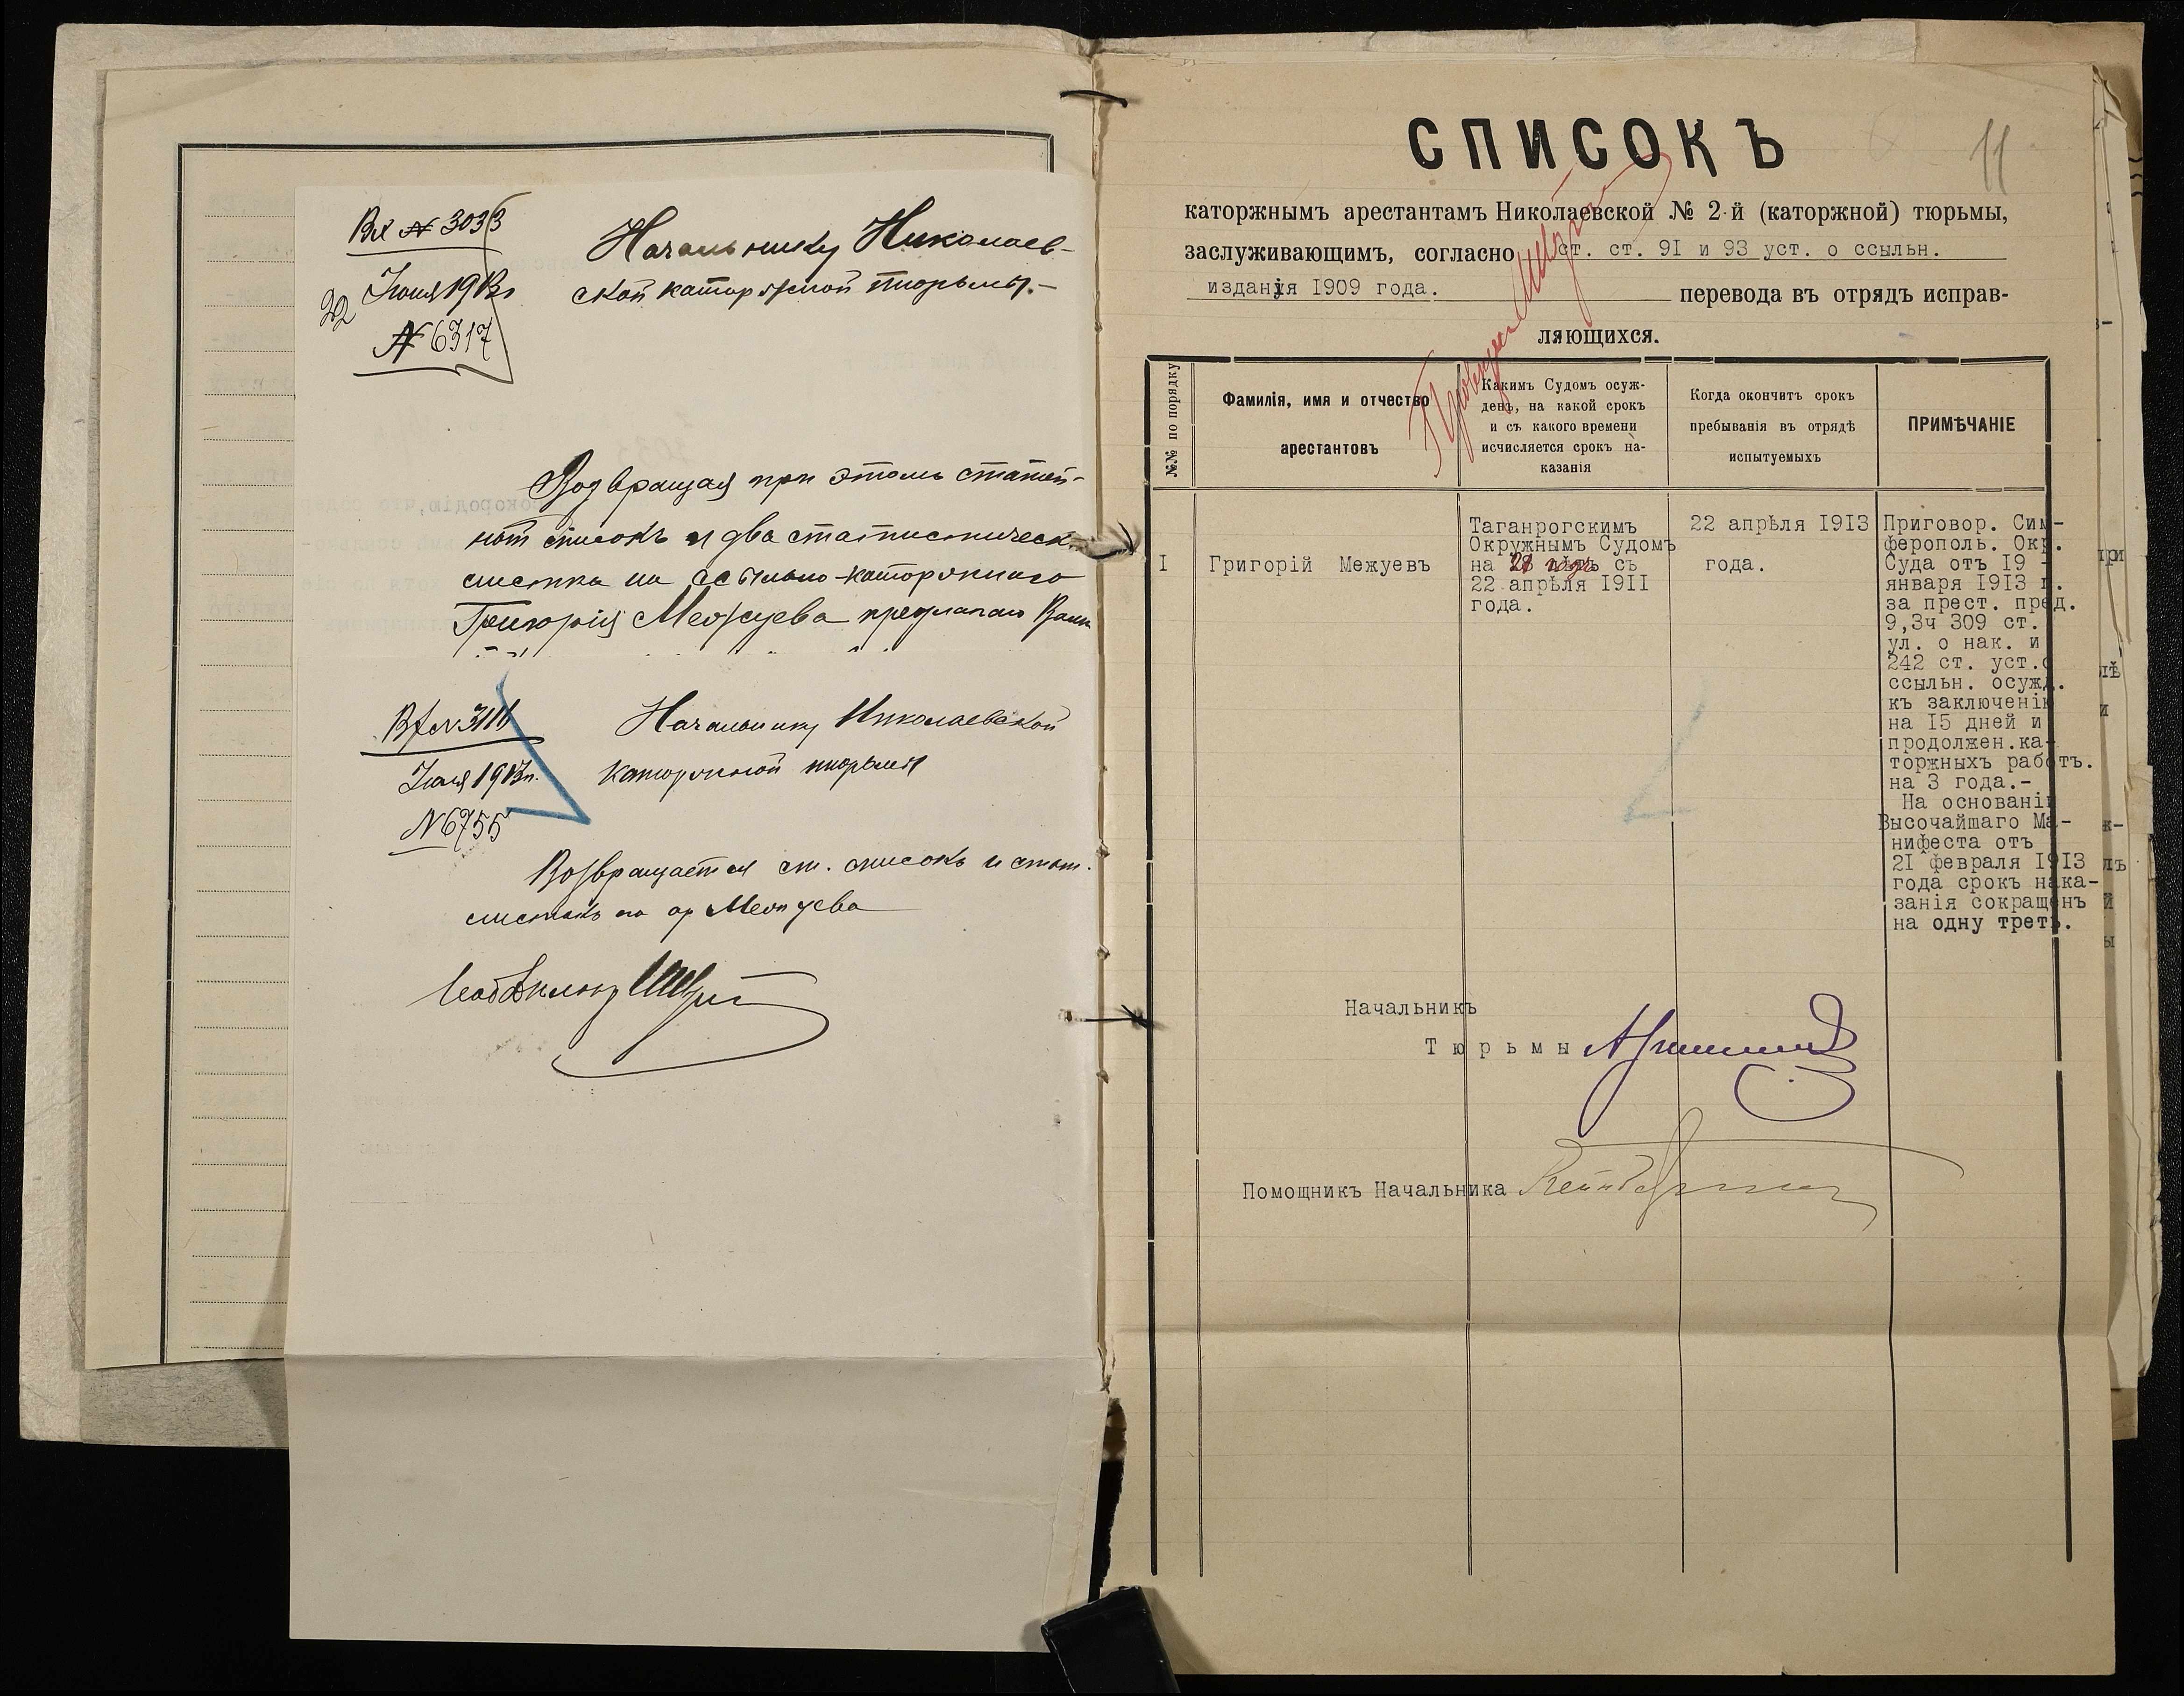 Вх № 3033
22 Июня 1913 г
№ 6317
Начальнику Николаев-
ской каторжной тюрьмы.-
Возвращая при этомъ статей-
ный списокъ и два статистическ.
листка на ссыльно-каторжнаго
Григорія Межуева предлагаю Вамъ
Вх №
1913 г.
№ 6755
Начальнику Николаевской
каторжной тюрьмы
Возвращается ст. списокъ и стат.
листокъ на ар Межуева
11
СПИСОКЪ
каторжнымъ арестантамъ Николаевской № 2-й (каторжной) тюрьмы,
заслуживающимъ, согласно ст. ст. 91 и 93 уст. о ссыльн.
изданія 1909 года. перевода въ отрядъ исправ-
ляющихся.
№№ по порядку
Фамилія, имя и отчество
арестантовъ
Какимъ Судомъ осуж-
денъ, на какой срокъ
и съ какого времени
исчисляется срокъ на-
казанія
Когда окончитъ срокъ
пребыванія въ отрядѣ
испытуемыхъ
ПРИМѢЧАНІЕ
I
Григорій Межуевъ
Таганрогскимъ
Окружнымъ Судомъ
на съ
22 апрѣля 1911
года.
22 апрѣля 1913
года.
Приговор. Сим-
ферополь. Окр.
Суда отъ 19 -
января 1913 г.
за прест. пред.
9,3ч 309 ст.
ул. о нак. и
242 ст. уст.о
ссыльн. осужд.
къ заключенію
на 15 дней и
продолжен.ка-
торжныхъ работъ.
на 3 года.-
На основаніи
Высочайшаго Ма-
нифеста отъ
21 февраля 1913
года срокъ нака-
занія сокращенъ
на одну треть.
Начальникъ
Тюрьмы
Помощникъ Начальника